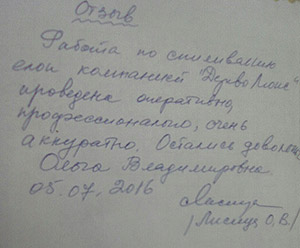 Отзыв
Работа по спиливанию
ели компанией "ДеревоПлюс"
проведена оперативно,
профессионально, очень
аккуратно. Остались довольны
Ольга Владимировна.
05.07.2016
/Лисица О.В./